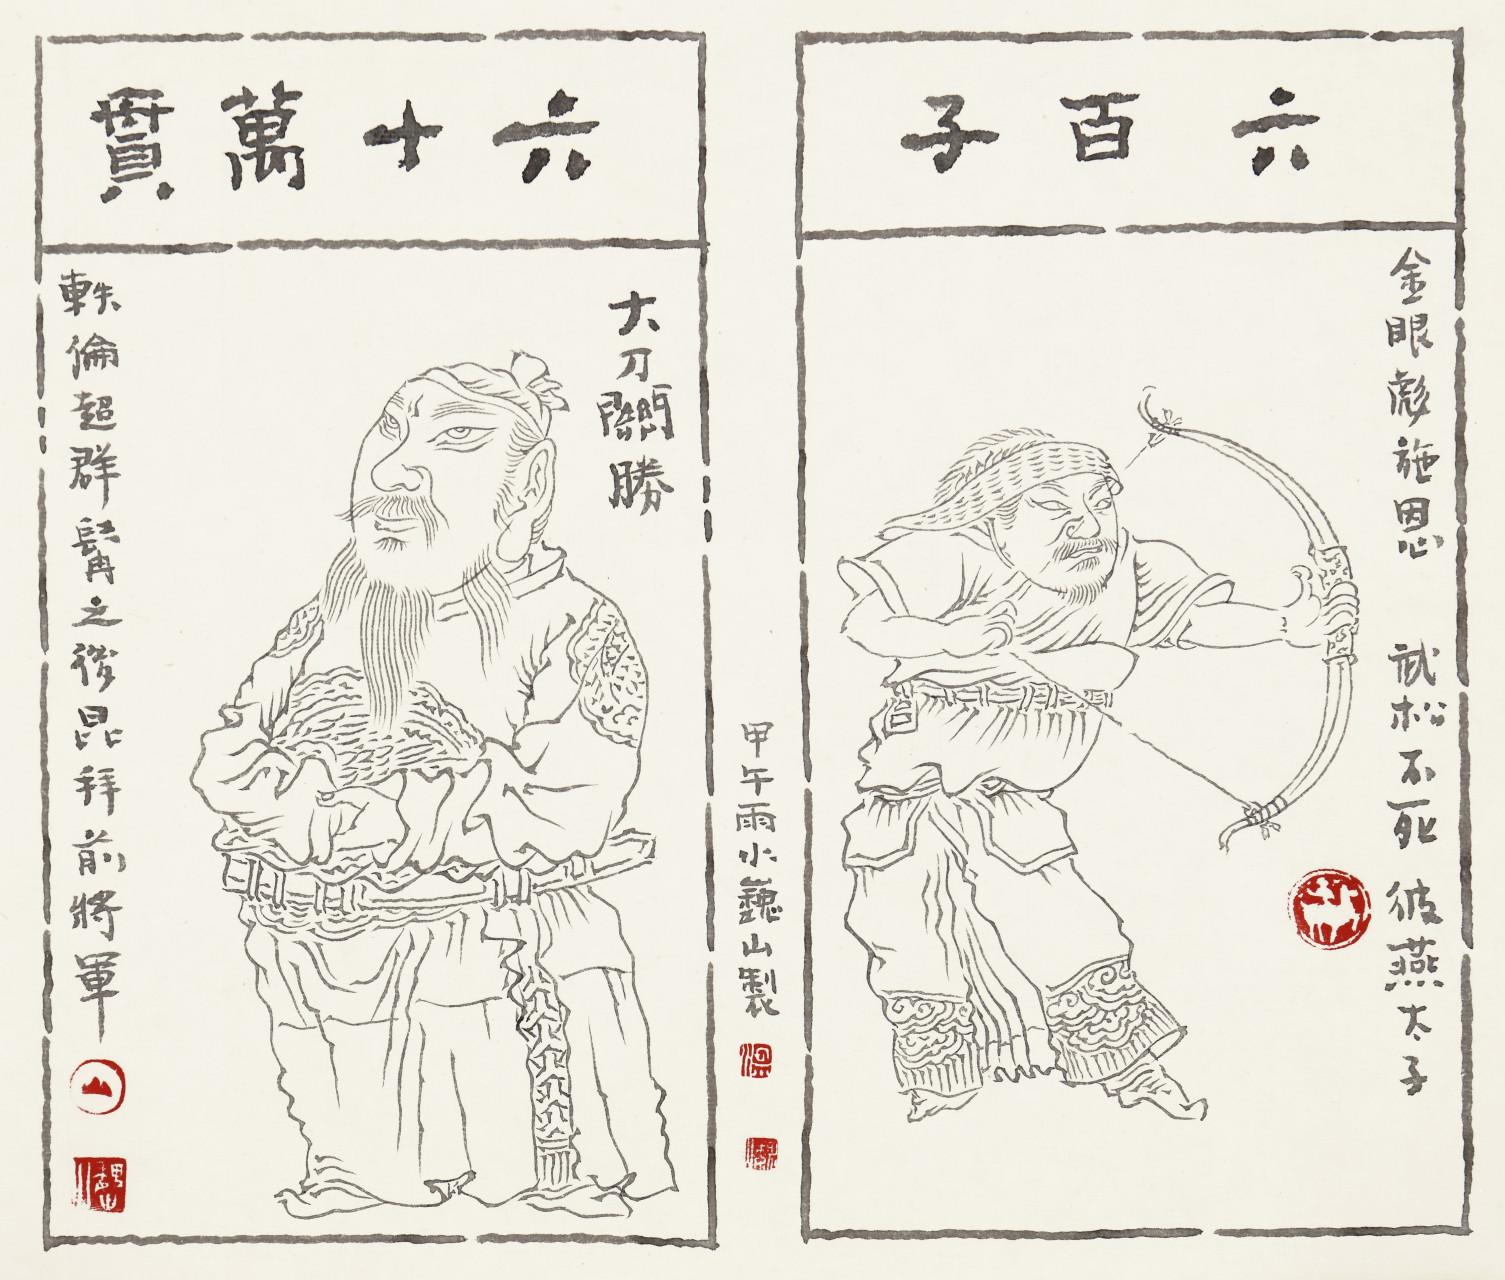 六百子
金眼彪施恩 武松不死 彼燕太子
甲午雨水巍山製
六十萬貫
大刀關勝
軼倫超群髯之後昆拜前將軍